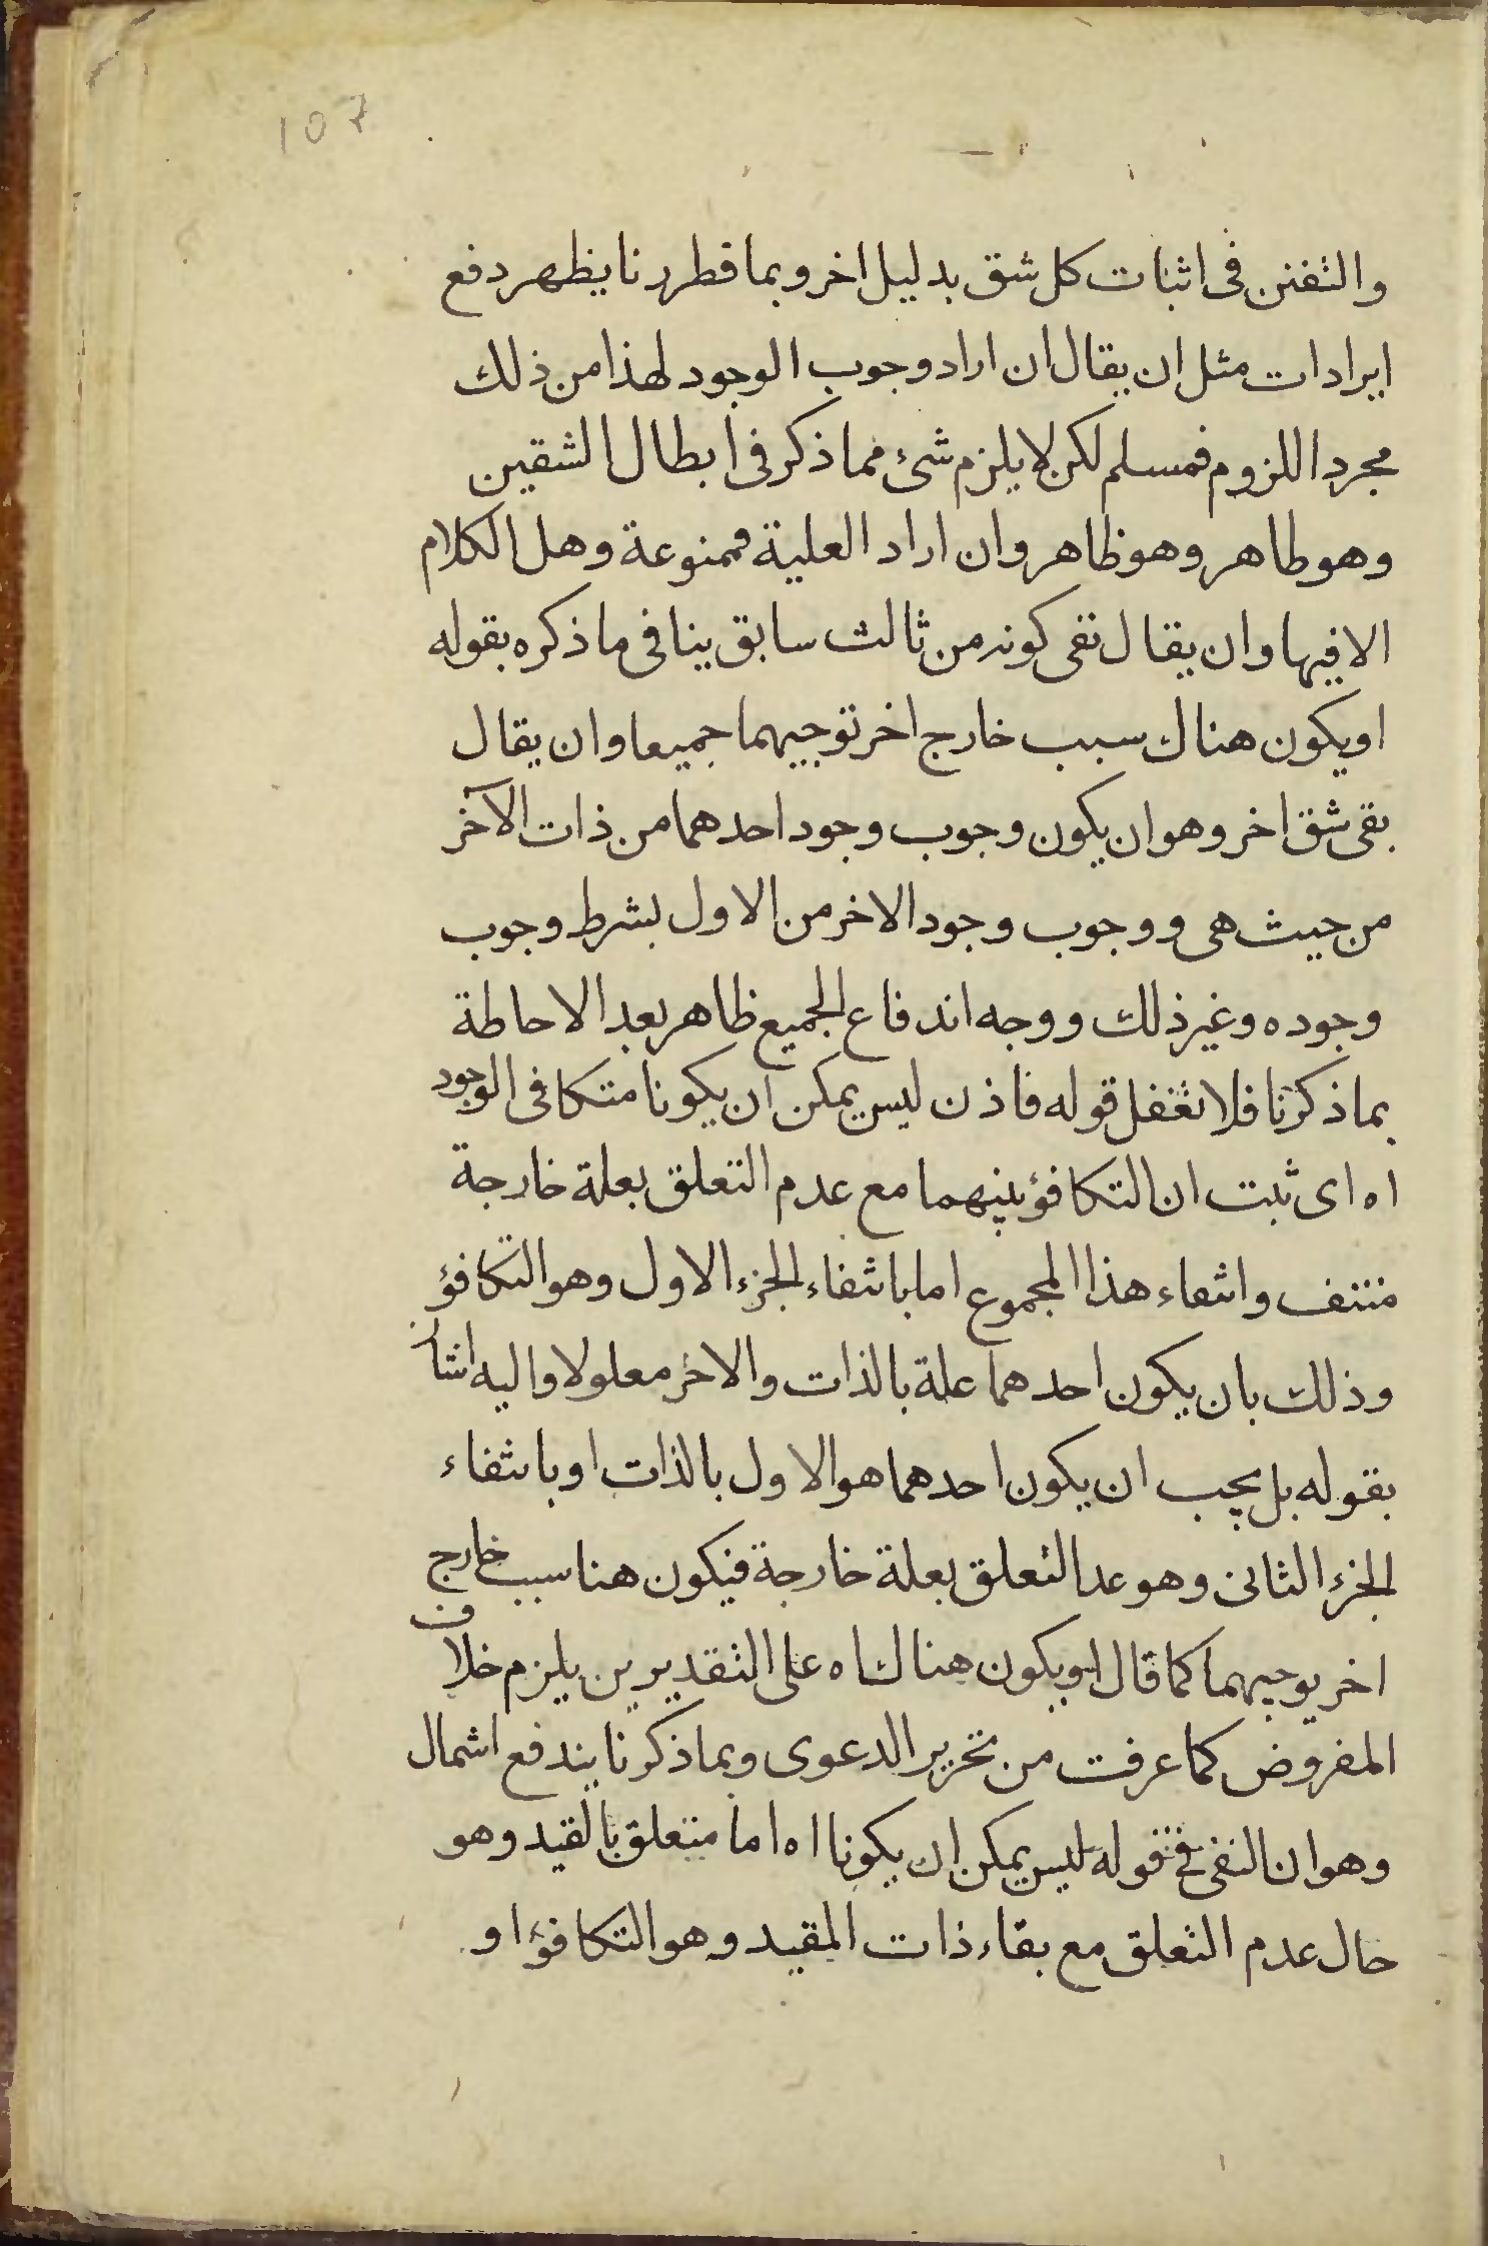 107
والتفنن فى اثبات كل شق بدليل اخر وبما قطررنا يظهر دفع
ايرادات مثل ان يقال ان اراد وجوب الوجود لهذا من ذلك
مجرد اللزوم فمسلم لكن لا يلزم شئ مما ذكر فى ابطال الشقين
وهو طاهر وهو ظاهر وان اراد العلية فممنوعة وهل الكلام
الا فيها وان يقال نفى كونه من ثالث سابق ينافى ما ذكره بقوله
او يكون هناك سبب خارج اخر توجيهما جميعا وان يقال
بقى شق اخر وهو ان يكون وجوب وجود احدهما من ذات الآخر
من حيث هى ووجوب وجود الاخر من الاول بشرط وجوب
وجوده وغير ذلك ووجه اندفاع الجميع ظاهر بعد الاحاطة
بما ذكرنا فلا تغفل قوله فاذن ليس يمكن ان يكونا متكافى الوجود
اه اى ثبت ان التكافؤ بينهما مع عدم التعلق بعلة خارجة
منتف وانتفاء هذا المجموع اما بانتفاء الجزء الاول وهو التكافؤ
وذلك بان يكون احدهما علة بالذات والاخر معلولا واليه اشار
بقوله بل يجب ان يكون احدهما هو الاول بالذات او بانتفاء
الجزء الثانى وهو عد التعلق بعلة خارجة فيكون هنا سبب خارج
اخر يوجبهما كما قال او يكون هناك اه على التقديرين يلزم خلاف
المفروض كما عرفت من تحرير الدعوى وبما ذكرنا يندفع اشمال
وهو ان النفى فى قوله ليس يمكن ان يكونا اه اما متعلق بالقيد وهو
حال عدم التعلق مع بقاء ذات المقيد وهو التكافؤ او